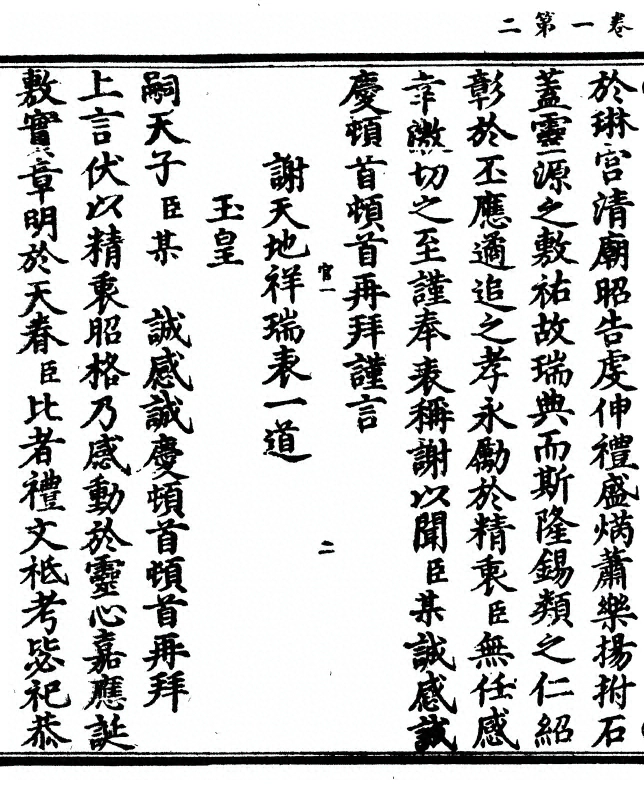 卷一第二
於琳宫清廟昭告虔伸禮盛焫蕭樂揚拊石
蓋靈源之敷祐故瑞典而斯隆錫類之仁紹
彰於丕應遹追之孝永勵於精衷臣無任感
幸激切之至謹奉表稱謝以聞臣某誠感誠
慶頓首頓首再拜謹言
官一
二
謝天地祥瑞表一道
玉皇
嗣天子臣某 誠感誠慶頓首頓首再拜
上言伏以精衷昭格乃感動於靈心嘉應誕
敷實章明於天眷臣比者禮文祗考毖祀恭